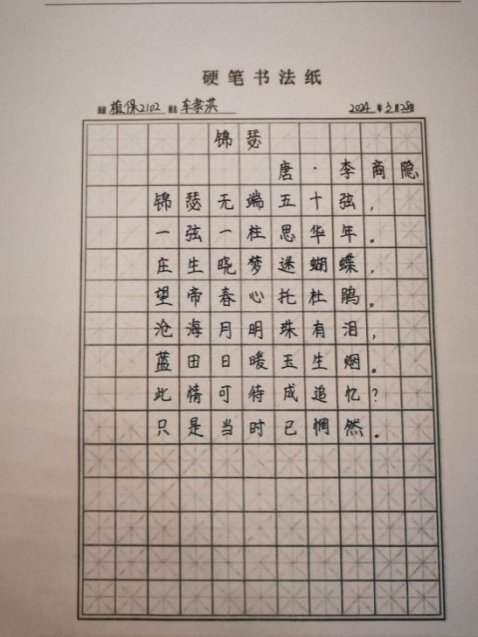 硬笔书法纸
班级 植保2102 姓名 车聿淇 2024年3月25日
锦瑟
唐·李商隐
锦瑟无端五十弦，
一弦一柱思华年。
庄生晓梦迷蝴蝶，
望帝春心托杜鹃。
沧海月明珠有泪，
蓝田日暖玉生烟。
此情可待成追忆？
只是当时已惘然。